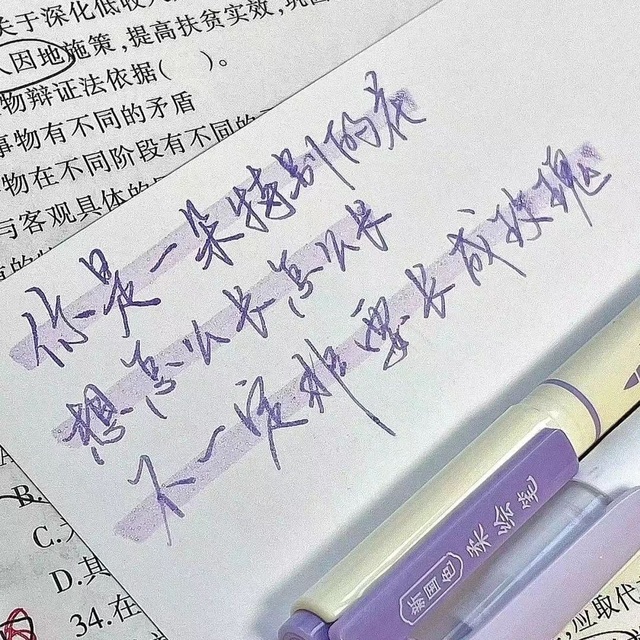 关于深化低收
因地施策,提高扶贫实效,巩
物辩证法依据( )。
事物有不同的矛盾
物在不同阶段有不同的
与客观具体的
你是一朵特别的花
想怎么长怎么长
不一定非要长成玫瑰
B.
C.
D.其
34.在
新国色 柔绘笔
应取代